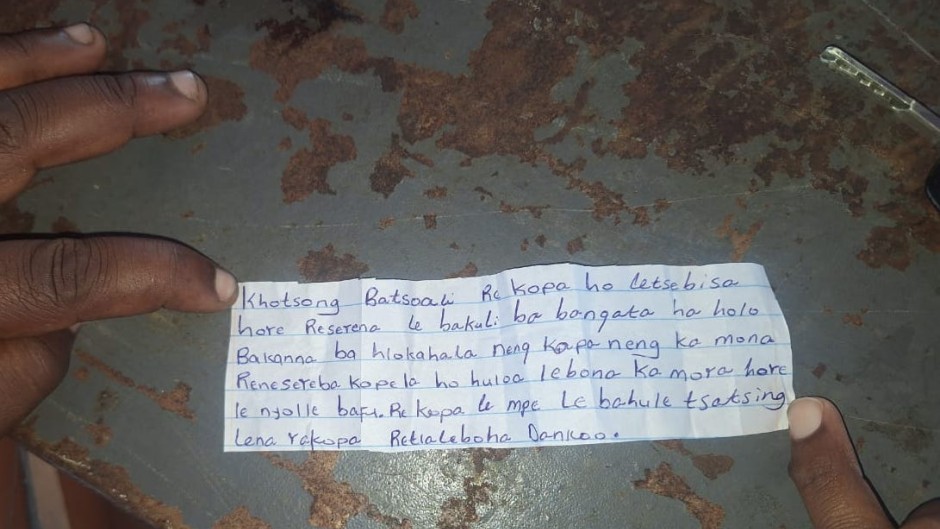 Khotsong Batsoali Re kopa ho letsebisa
hore Reserena le bakuli ba bangata ha holo
Bakanna ba hlokahala neng kapa neng ka mona
Renesereba kopela ho huloa lebona ka mora hore
le njolle bafu. Re kopa le mpe Le bahule tsatsing
lena rakopa Retlaleboha Dankoo.